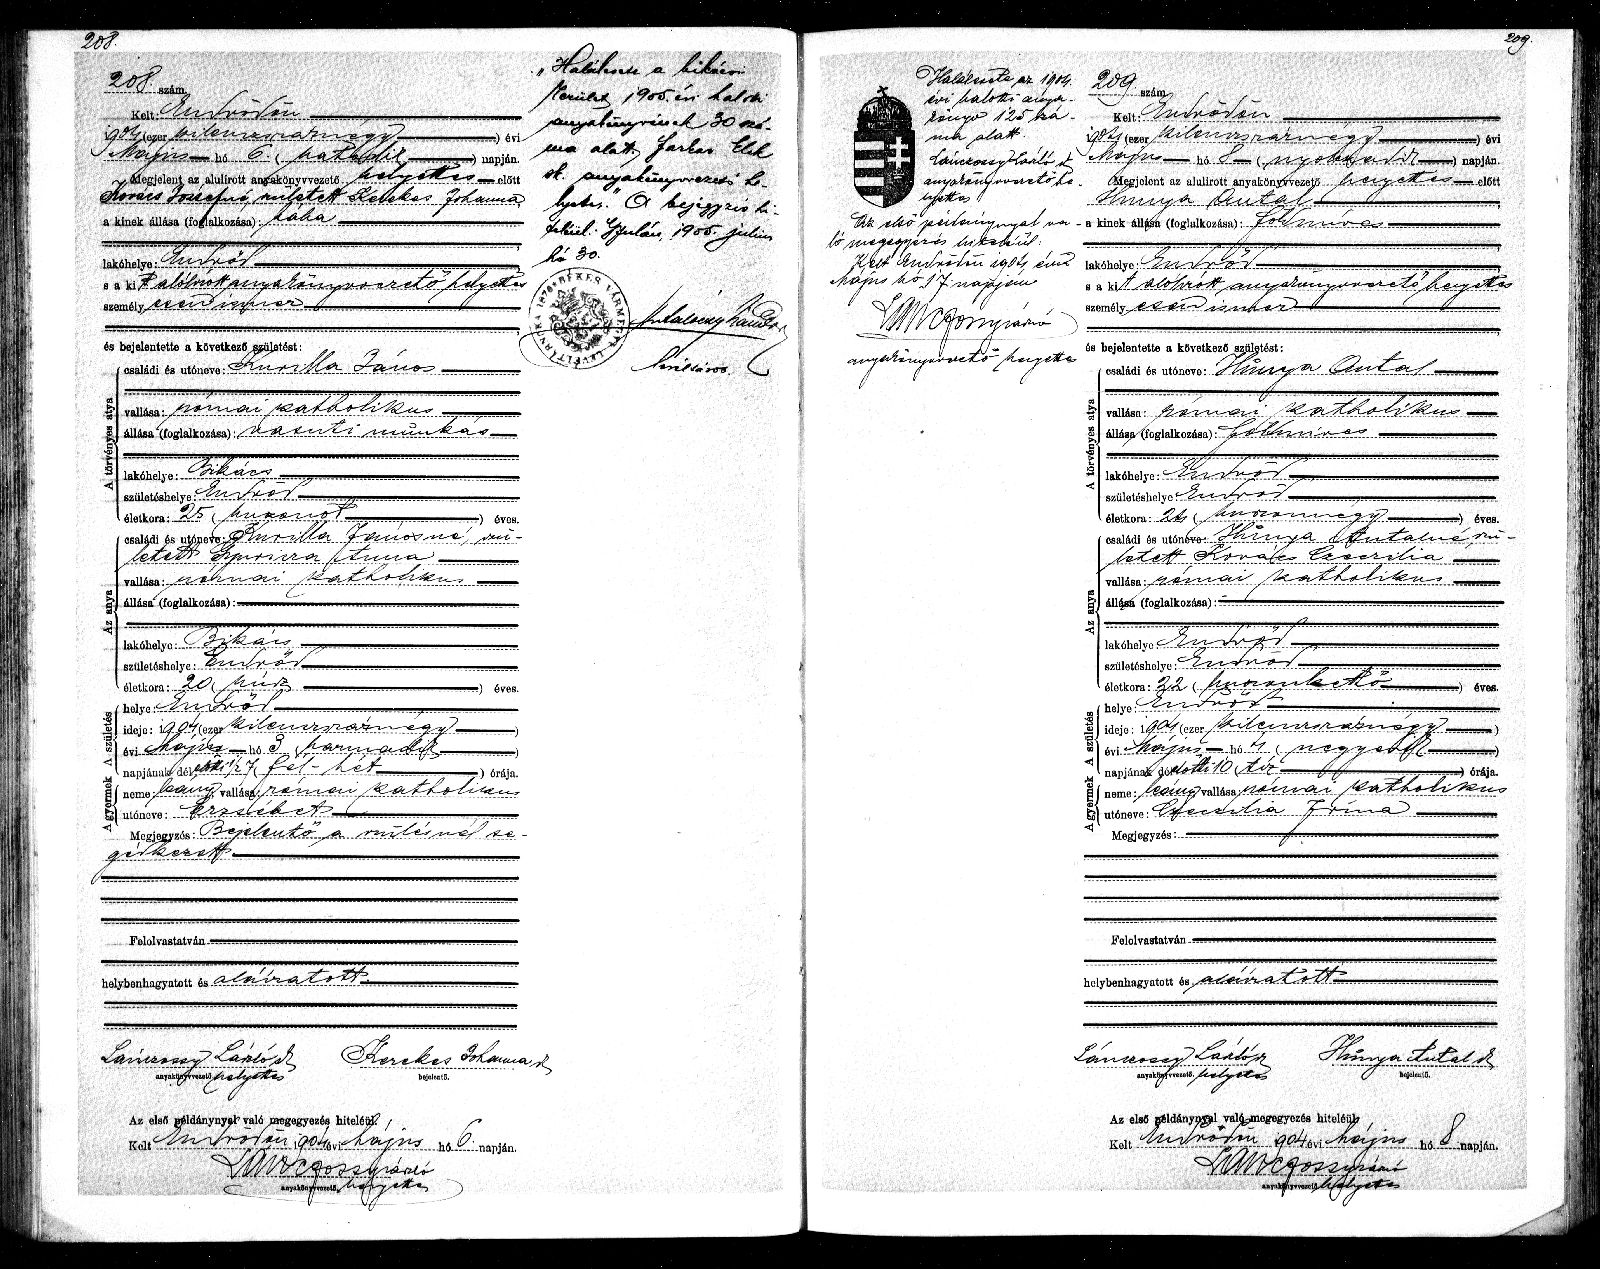 208.
208 szám.
Kelt: Endrődön
1904 (ezer kilenczszáznégy) évi
Május hó 6 (hatodik) napján.
Megjelent az alulirott anyakönyvvezető helyettes előtt
Kovács Józsefné, született Kerekes Johanna
a kinek állása (foglalkozása): bába
lakóhelye: Endrőd
s a kit alólirott anyakönyvvezető helyettes
személyesen ismer
és bejelentette a következő születést:
A törvényes atya
családi és utóneve: Kurilla János
vallása: római katholikus
állása (foglalkozása): vasuti munkás
lakóhelye: Bikács
születéshelye: Endrőd
életkora: 25 (huszonöt) éves.
Az anya
családi és utóneve: Kurilla Jánosné, szü-
letett Gyuricza Anna
vallása: római katholikus
állása (foglalkozása):
lakóhelye: Bikács
születéshelye: Endrőd
életkora: 20 (húsz) éves.
A születés
helye: Endrőd
ideje: 1904 (ezer kilenczszáznégy)
évi Május hó 3 (harmadik)
napjának délelőtti 1/2 7 (fél-hét) órája.
A gyermek
neme: leány vallása: római katholikus
utóneve: Erzsébet
Megjegyzés: Bejelentő a szülésnél se-
gédkezett
Felolvastatván
helybenhagyatott és aláíratott
Lánczossy László sk Kerekes Johanna sk
anyakönyvvezető. helyettes bejelentő.
Az első példánynyal való megegyezés hiteléül.
Kelt Endrődön 1904 évi Május hó 6. napján.
Lánczossy László
anyakönyvvezető. helyettes
"Halálesete a bikácsi
kerület 1905. évi haloti
anyakönyvének 30 szá-
ma alatt. Farkas Elek
sk. anyakönyvvezető he-
lyettes." A bejegyzés hi-
teléül. Gyulán, 1905. július
hó 30.
BÉKES VÁRMEGYE LEVÉLTÁRNOKA 1876
levéltáros.
209.
Halálesete az 1904.
évi halotti anya-
könyv 125 szá-
ma alatt.
Lánczossy László sk
anyakönyvvezető he-
lyettes
Az első példánynyal va-
ló megegyezés hiteléül:
Kelt Endrődön 1904 évi
Május hó 17 napján
Lánczossy László
anyakönyvvezető helyettes
209 szám.
Kelt: Endrődön
1904 (ezer kilenczszáznégy) évi
Május hó 8 (nyolczadik) napján.
Megjelent az alulirott anyakönyvvezető helyettes előtt
Hunya Antal
a kinek állása (foglalkozása): földmives
lakóhelye: Endrőd
s a kit alólirott anyakönyvvezető helyettes
személyesen ismer
és bejelentette a következő születést:
A törvényes atya
családi és utóneve: Hunya Antal
vallása: római katholikus
állása (foglalkozása): földmives
lakóhelye: Endrőd
születéshelye: Endrőd
életkora: 24 (huszonnégy) éves.
Az anya
családi és utóneve: Hunya Antalné, szü-
letett Kovács Czeczilia
vallása: római katholikus
állása (foglalkozása):
lakóhelye: Endrőd
születéshelye: Endrőd
életkora: 22 (huszonkettő) éves.
A születés
helye: Endrőd
ideje: 1904 (ezer kilenczszáznégy)
évi Május hó 4 (negyedik)
napjának délelőtti 10 (tíz) órája.
A gyermek
neme: leány vallása: római katholikus
utóneve: Czeczilia Irma
Megjegyzés:
Felolvastatván
helybenhagyatott és aláíratott
Lánczossy László sk Hunya Antal sk
anyakönyvvezető. helyettes bejelentő.
Az első példánynyal való megegyezés hiteléül.
Kelt Endrődön 1904 évi Május hó 8 napján.
Lánczossy László
anyakönyvvezető. helyettes